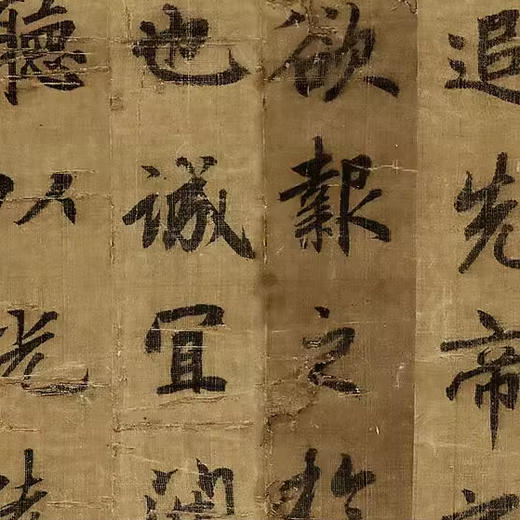 追先帝
欲報之於
也誠宜開
聽以光先